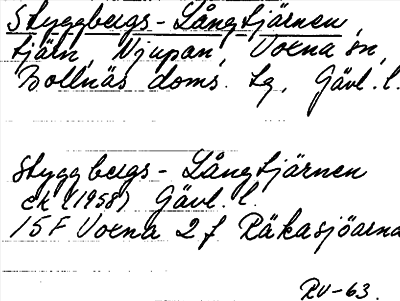 Styggbergs-Långtjärnen,
tjärn, Njupan, Voxna sn,
Bollnäs doms. tg, Gävl. l.
Styggbergs-Långtjärnen
ek (1958) Gävl. l.
15F Voxna 2f Räkasjöarna
RU-63.